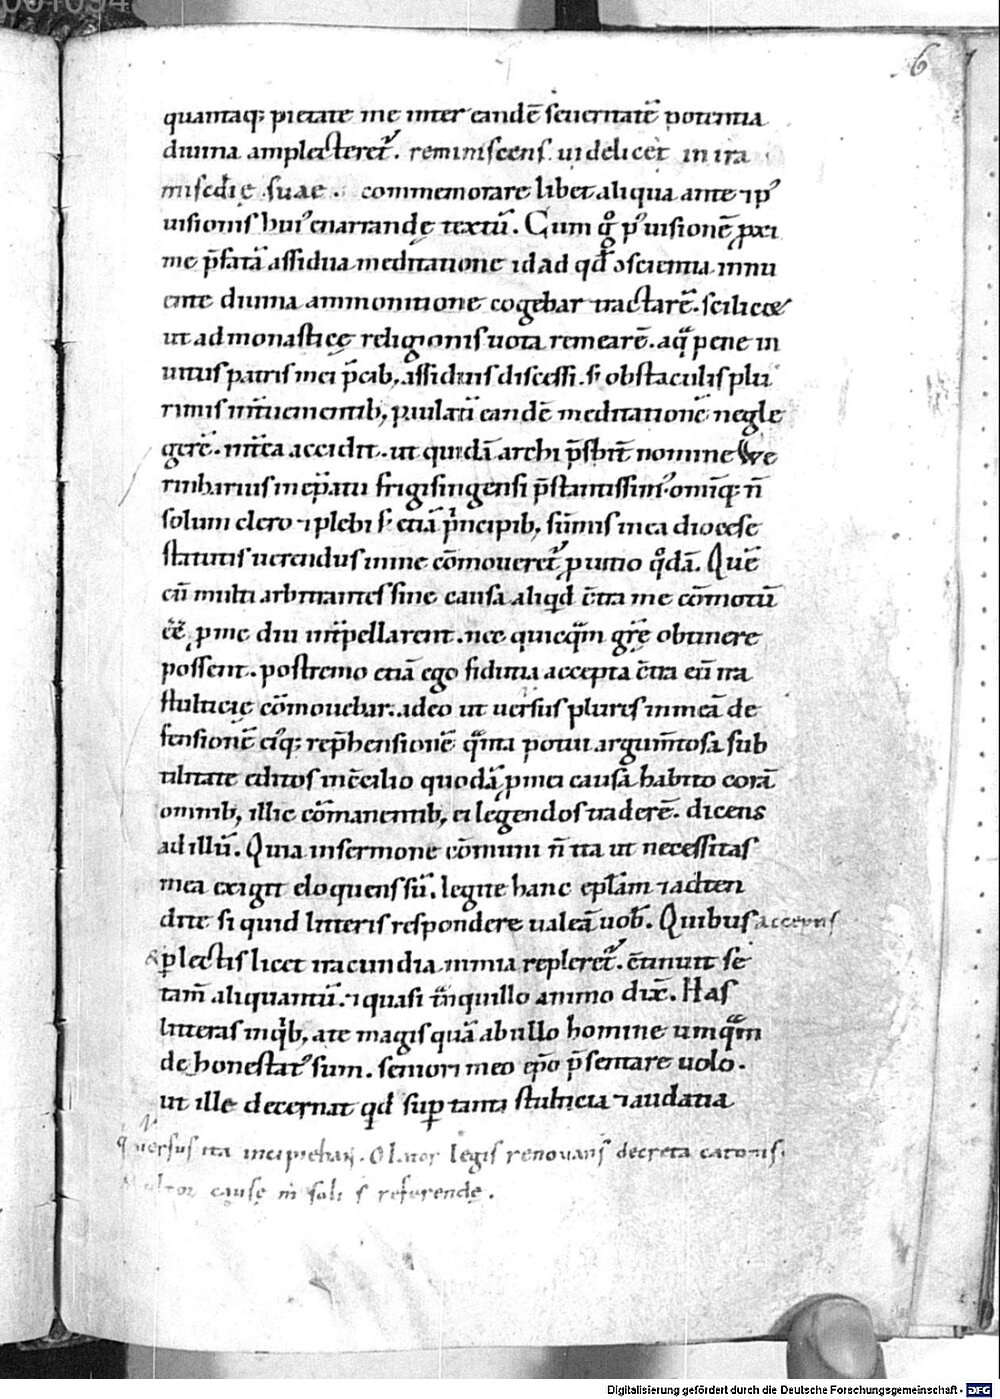 6
quantaq; pietate me inter eandē seueritatē potentia
diuina amplecteret᷑. reminiscens uidelicet in ira
misċdię suae. commemorare libet aliqua ante ⁊ pꝰ
uisionis huiꝰ enarrandę textū. Cum gͦ pꝰ uisionē ꝓxi
me p̄fatā assidua meditatione id ad qđ ↄscientia innu
ente diuina ammonitione cogebar tractarē. scilicet
ut ad monasticę religionis uota remearē. a q̄ pene in
uitus patris mei p̄cib; assiduis discessi. sꝫ obstaculis plu
rimis int̄uenientib; paulatī eandē meditationē negle
gerē. int̄ea accidit. ut quidā archi p̄sbit̄ nomine We
rinharius in ep̄atu frigisingensi p̄stantissimꝰ omiq; n̄
solum clero ⁊ plebi sꝫ etiā p̍ncipib; sūmis in ea diocese
statutis uerendus in me cōmoueret᷑ ꝑ uitio qͦdā. Quē
cū multi arbitrantes sine causa aliqͥd c̄tra me cōmotū
ēē, ꝓ me diu int̄pellarent. nec quicqͣm grę obtinere
possent. postremo etiā ego fiducia accepta c̄tra eū ita
stulticię cōmouebar. adeo ut uersus plures in meā de
fensionē eiꝰq; rep̄hensionē qͣnta potui argum̄tosa sub
tilitate editos in c̄cilio quodā ꝓ mei causa habito corā
omnib; illic cōmanentib; ei legendos traderē. dicens
ad illū. Quia in sermone cōmuni n̄ ita ut necessitas
mea exigit eloquens sū. legite hanc epl̄am ⁊ adten
dite si quid litteris respondere ualeā uob̄. Quibus acceptis
& ꝑlectis licet iracundia nimia repleret᷑. c̄tinuit se
tam̄ aliquantū. ⁊ quasi tͣnquillo animo dix̄. Has
litteras inqͥb; a te magis quā ab ullo homine umqͣm
dehonestatꝰ sum. seniori meo ep̄o p̄sentare uolo.
ut ille decernat qͥd suꝑ tanta stulticia ⁊ audatia
qͥ uersus ita incipiebant. O lator legis renouans decreta catonis.
causę referendę.
Digitalisierung gefördert durch die Deutsche Forschungsgemeinschaft - DFG